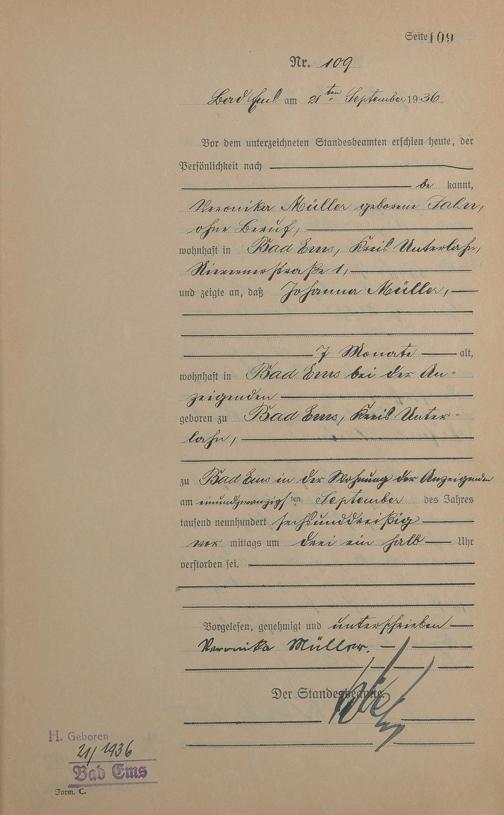 Seite 109
Nr. 109
Bad Ems am 21ten September 1936
Vor dem unterzeichneten Standesbeamten erschien heute, der
Persönlichkeit nach
be kannt,
Veronika Müller geborene
ohne Beruf,
wohnhaft in Bad Ems, Kreis Unterlahn,
1,
und zeigte an, daß Johanna Müller,
7 Monate alt,
wohnhaft in Bad Ems bei der An-
zeigenden
geboren zu Bad Ems, Kreis Unter-
lahn,
zu Bad Ems in der Wohnung der Anzeigenden
am einundzwanzigsten September des Jahres
tausend neunhundert sechsunddreißig
vor mittags um drei ein halb Uhr
verstorben sei.
Vorgelesen, genehmigt und unterschrieben
Veronika Müller.
Der Standesbeamte
H. Geboren
21/1936
Bad Ems
Form. C.